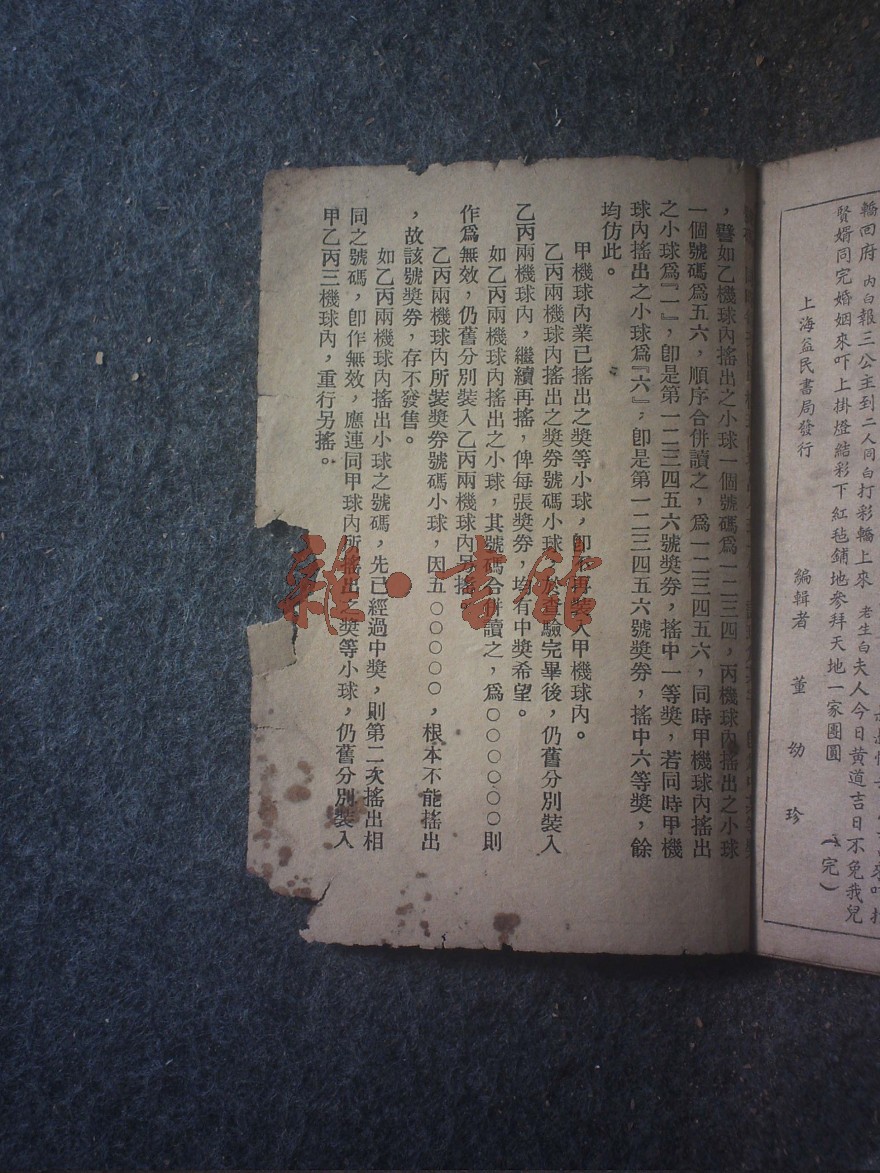 轎回府　內白報三公主到二人同白打彩轎上來　老生白夫人今日黃道吉日不免我兒
賢婿同完婚姻來吓上掛燈結彩下紅毡鋪地參拜天地一家團圓　（完）
上海益民書局發行　編輯者　董幼珍
，譬如乙機球內搖出之小球一個號碼爲一二三四，丙機球內搖出之小球
一個號碼爲五六，順序合併讀之，爲一二三四五六，同時甲機球內搖出
之小球爲『一』，卽是第一二三四五六號獎券，搖中一等獎，若同時甲機
球內搖出之小球爲『六』，卽是第一二三四五六號獎券，搖中六等獎，餘
均仿此。
甲機球內業已搖出之獎等小球，卽不再裝入甲機球內。
乙丙兩機球內搖出之獎券號碼小球，查驗完畢後，仍舊分別裝入
乙丙兩機球內，繼續再搖，俾每張獎券，均有中獎希望。
如乙丙兩機球內搖出之小球，其號碼合併讀之，爲〇〇〇〇〇〇則
作爲無效，仍舊分別裝入乙丙兩機球內另搖。
乙丙兩機球內所裝獎券號碼小球，因五〇〇〇〇〇，根本不能搖出
，故該號獎券，存不發售。
如乙丙兩機球內搖出小球之號碼，先已經過中獎，則第二次搖出相
同之號碼，卽作無效，應連同甲球內所搖出之獎等小球，仍舊分別裝入
甲乙丙三機球內，重行另搖。
雜·書館